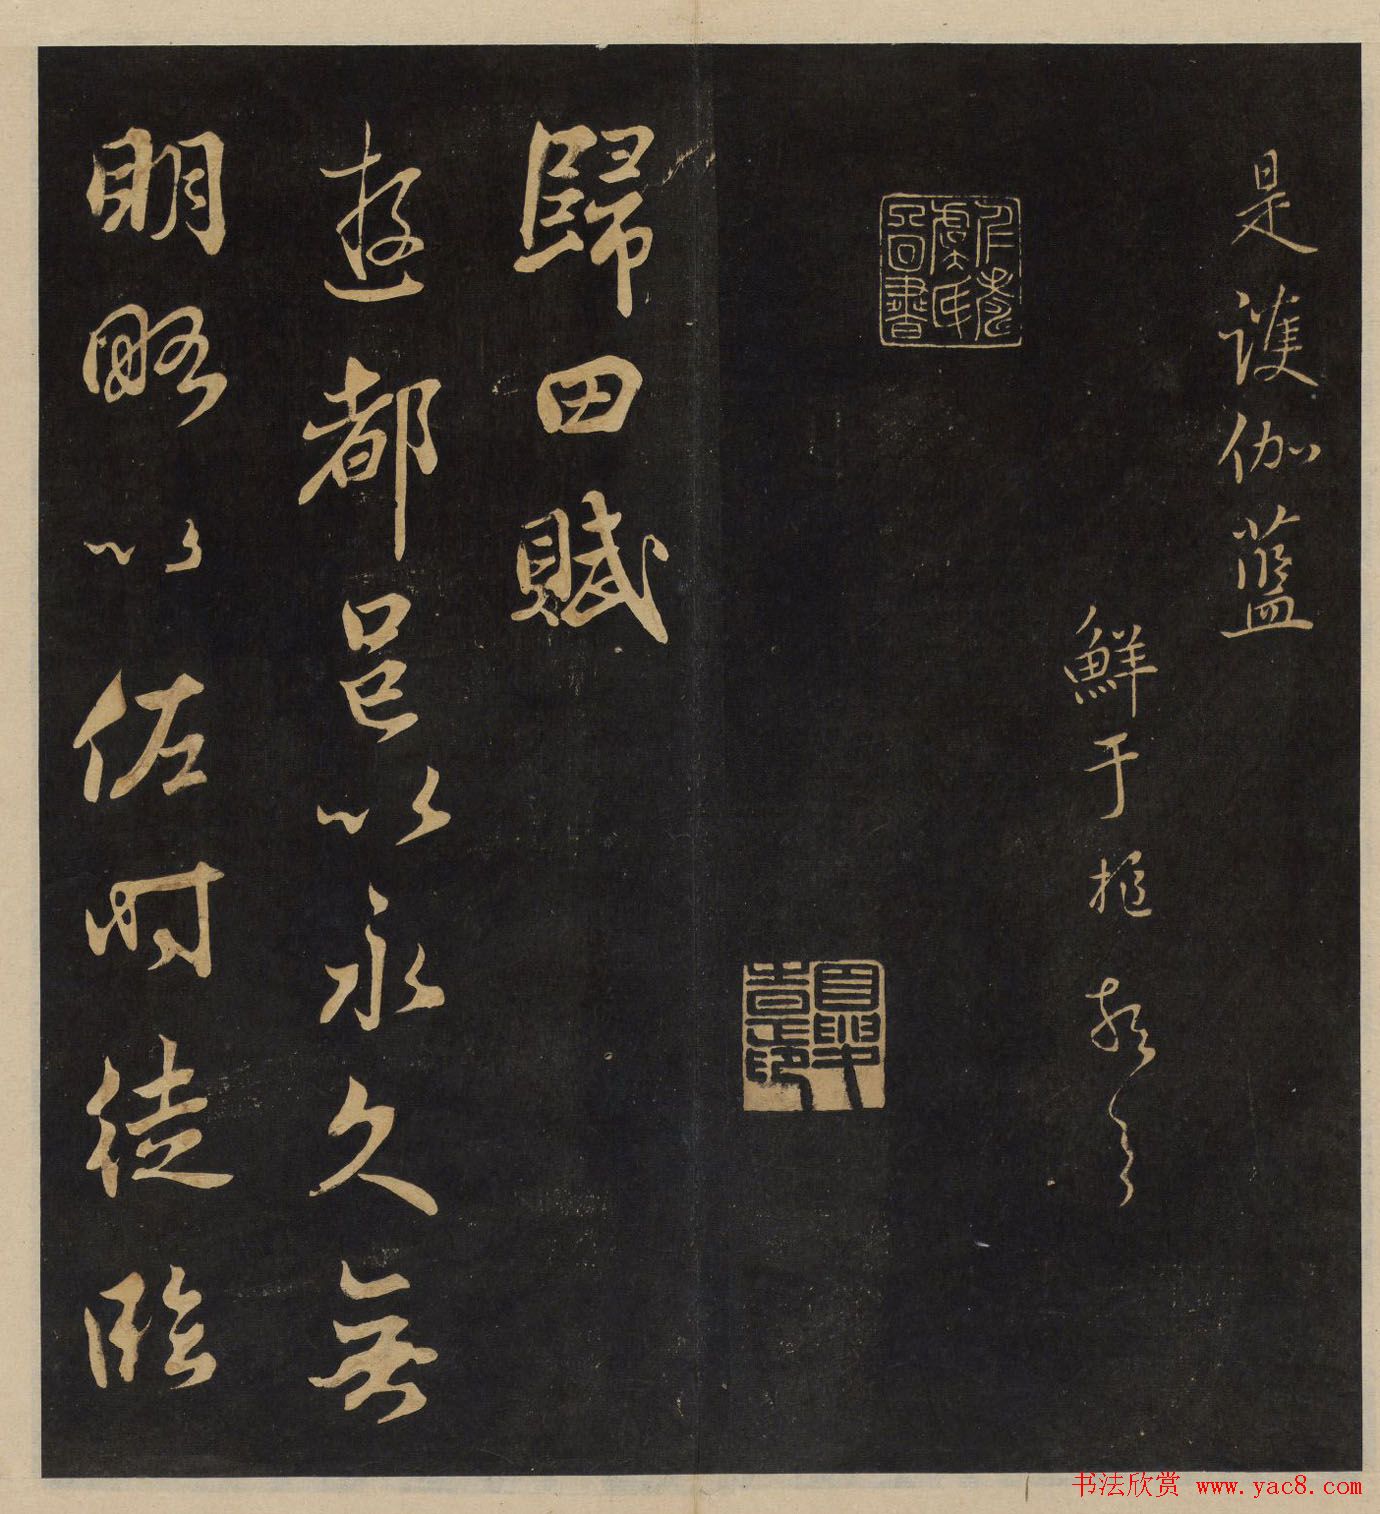 是護伽藍
鮮于樞
歸田賦
遊都邑以永久無
明略以佐時徒臨
书法欣赏 www.yac8.com